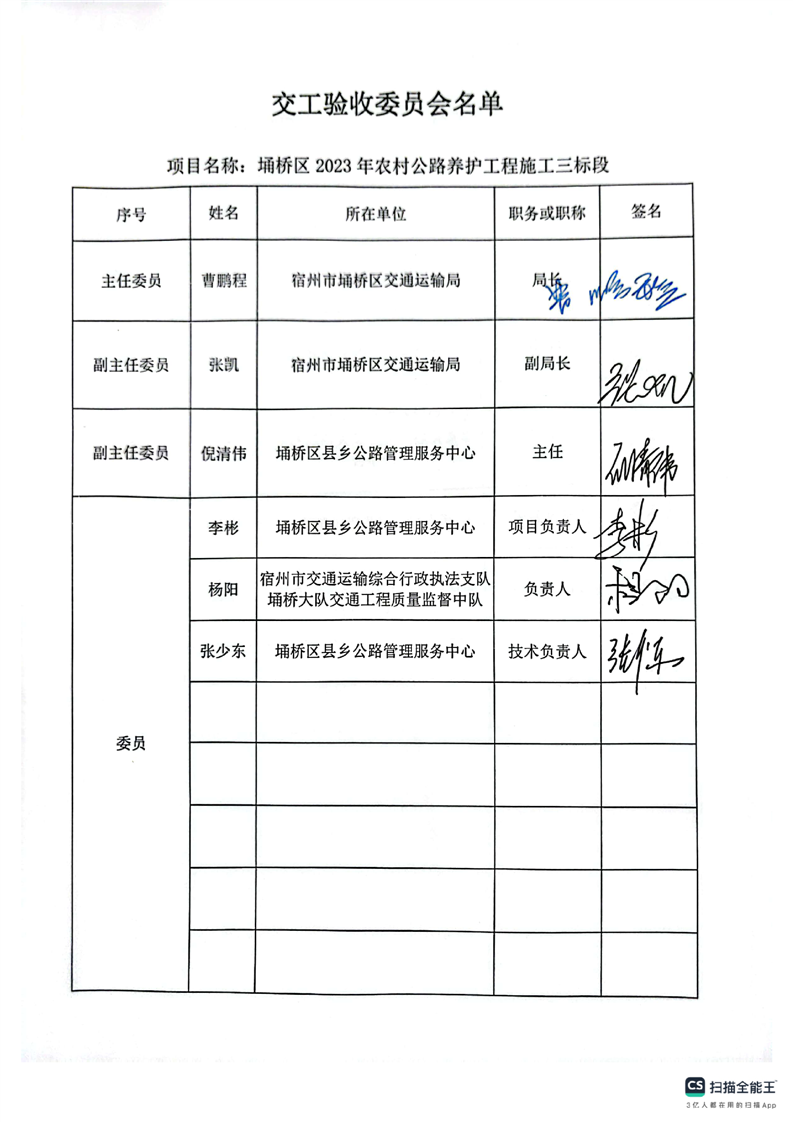 交工验收委员会名单
项目名称：埇桥区 2023 年农村公路养护工程施工三标段
序号 姓名 所在单位 职务或职称 签名
主任委员 曹鹏程 宿州市埇桥区交通运输局 局长
副主任委员 张凯 宿州市埇桥区交通运输局 副局长 张凯
副主任委员 倪清伟 埇桥区县乡公路管理服务中心 主任 倪清伟
李彬 埇桥区县乡公路管理服务中心 项目负责人 李彬
杨阳 宿州市交通运输综合行政执法支队
埇桥大队交通工程质量监督中队 负责人
张少东 埇桥区县乡公路管理服务中心 技术负责人 张少东
委员
CS 扫描全能王
3亿人都在用的扫描App